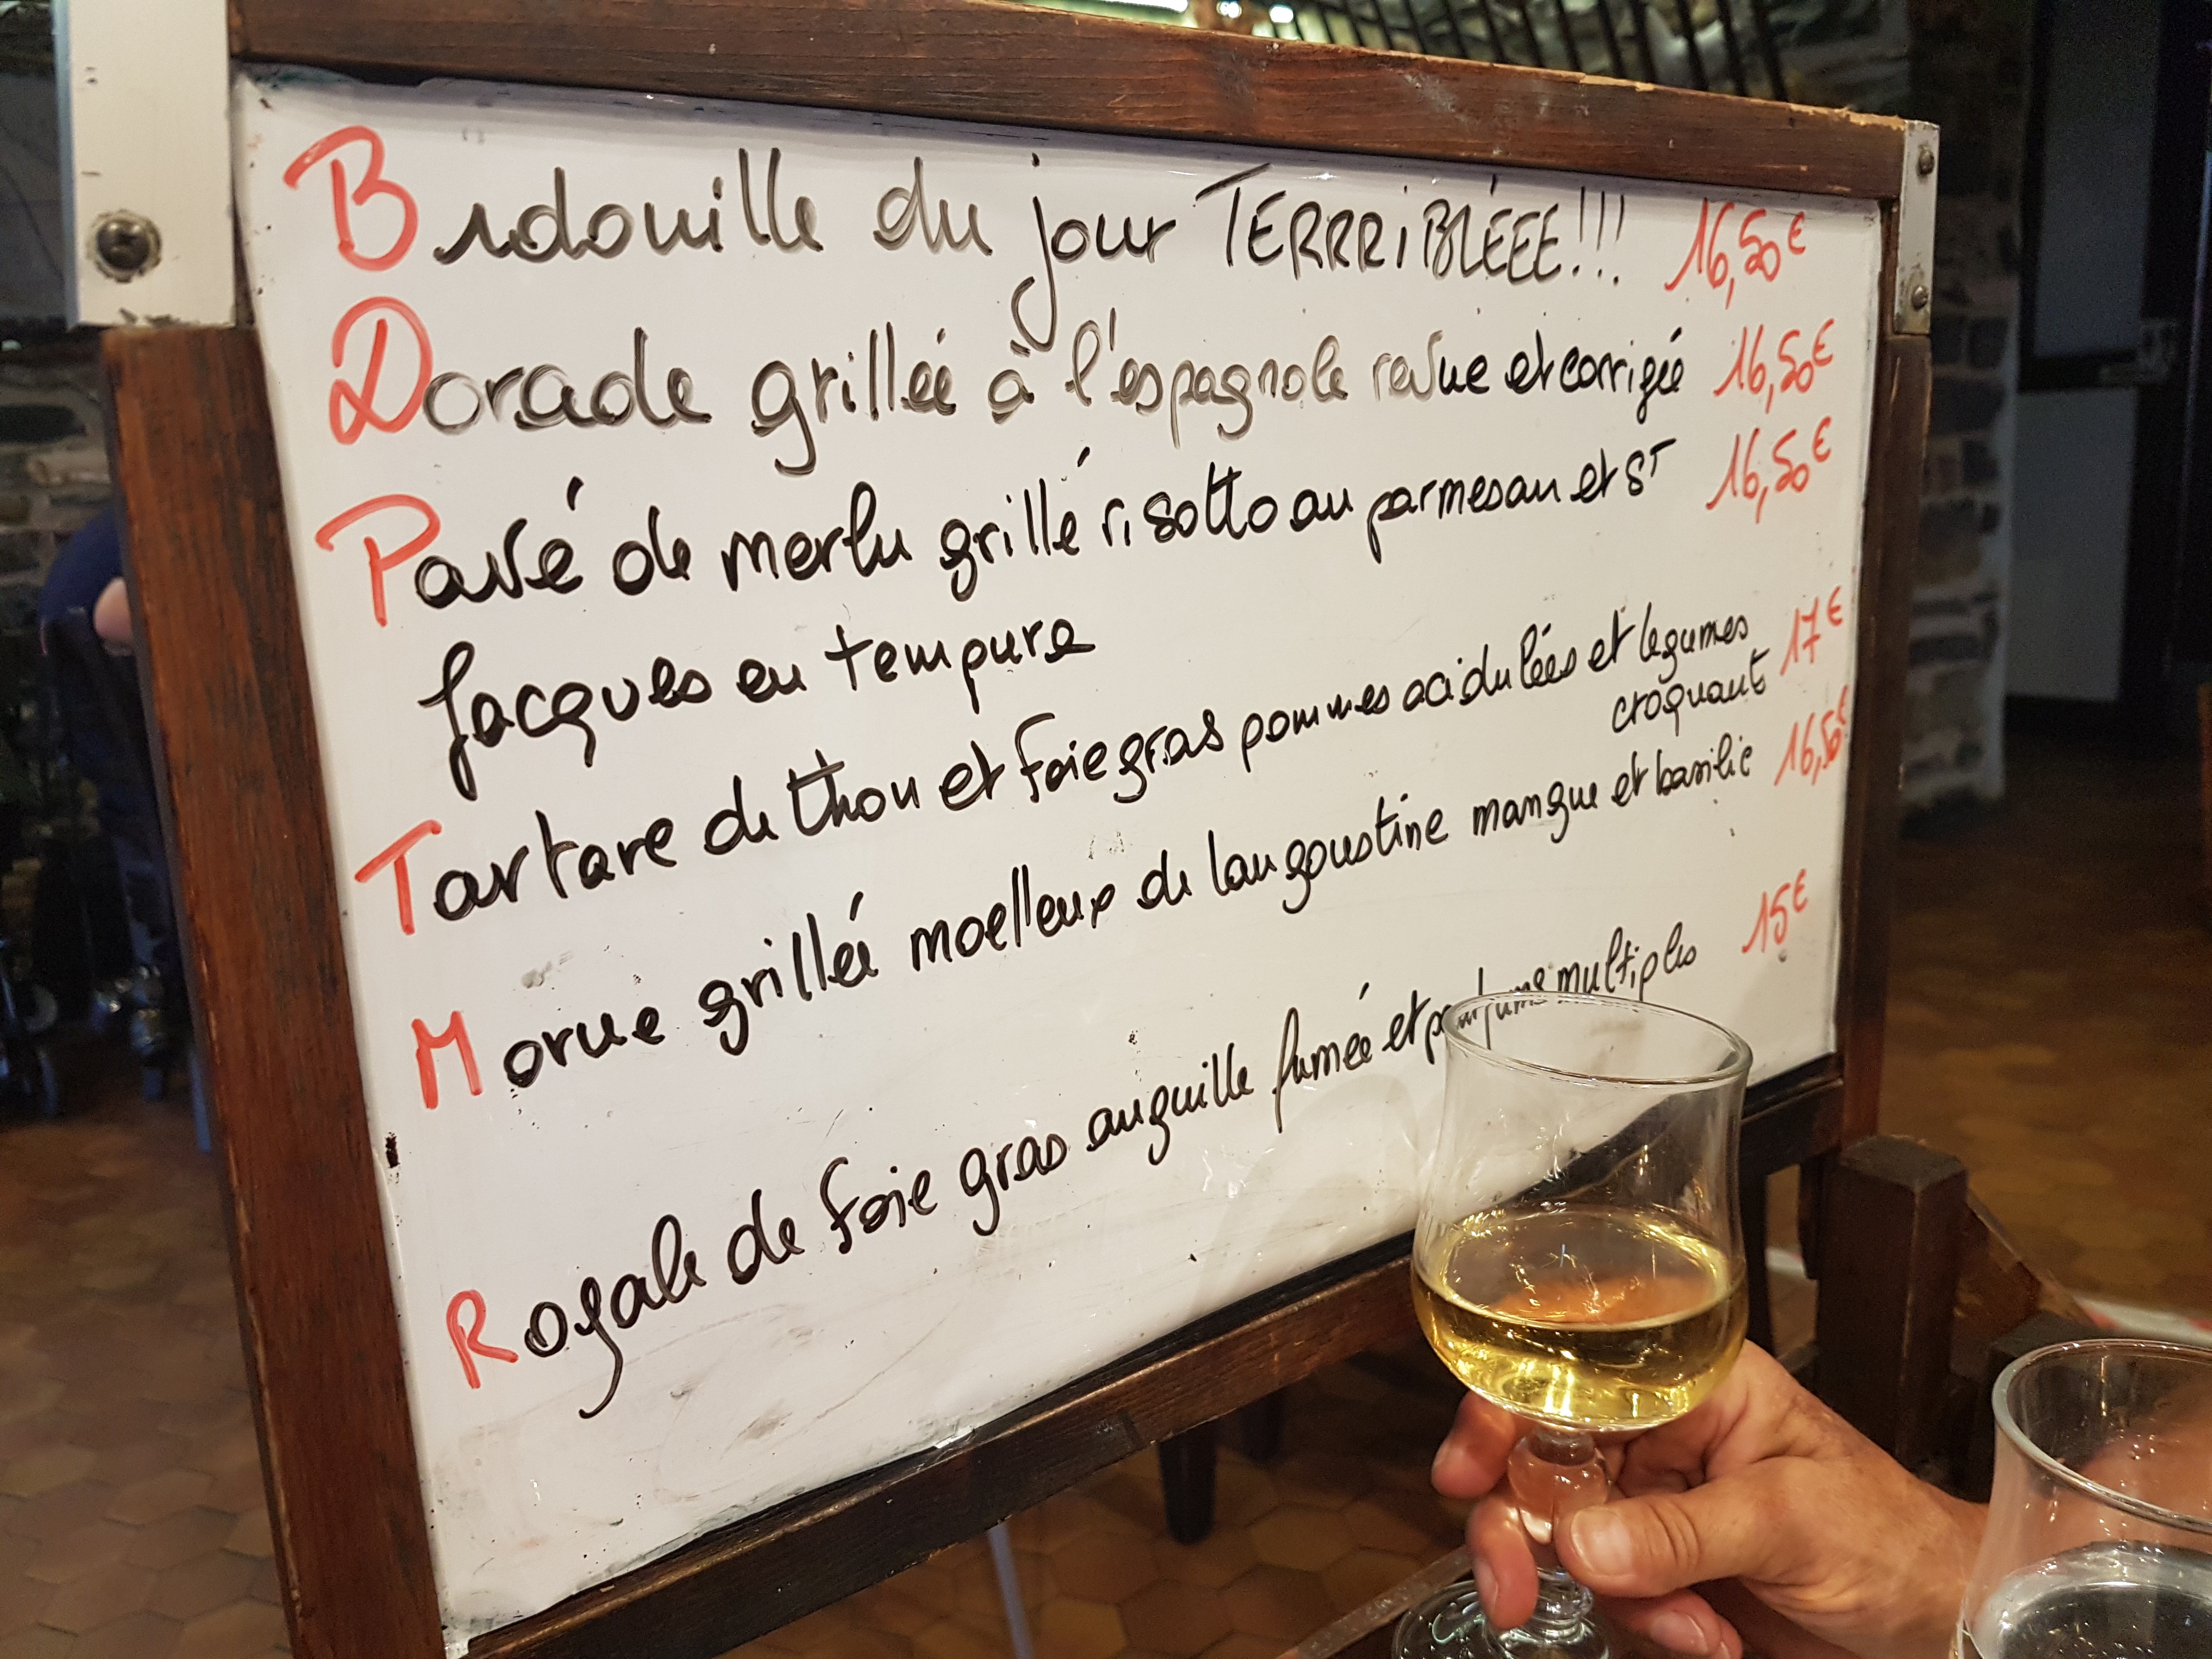 Bidouille du jour TERRRiBLÉEE!!! 16,50€
Dorade grillée à l'espagnole revue et corrigée 16,50€
Pavé de merlu grillé risotto au parmesan et ST 16,50€
Jacques en tempura
Tartare de thon et foie gras pommes acidulées et legumes 17€
croquant
Morue grillée moelleux de langoustine mangue et basilic 16,50€
Royale de foie gras anguille fumée et parfums multiples 15€